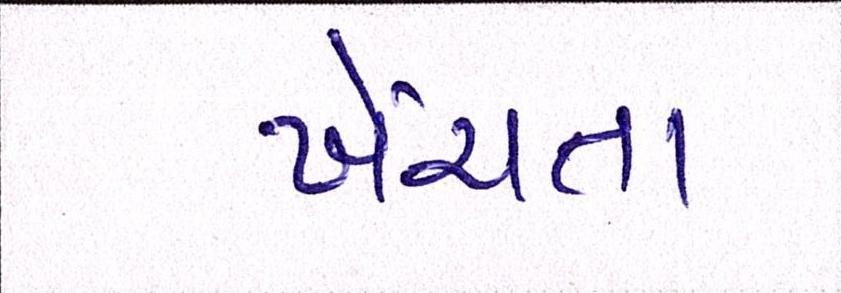 ખેંચતા